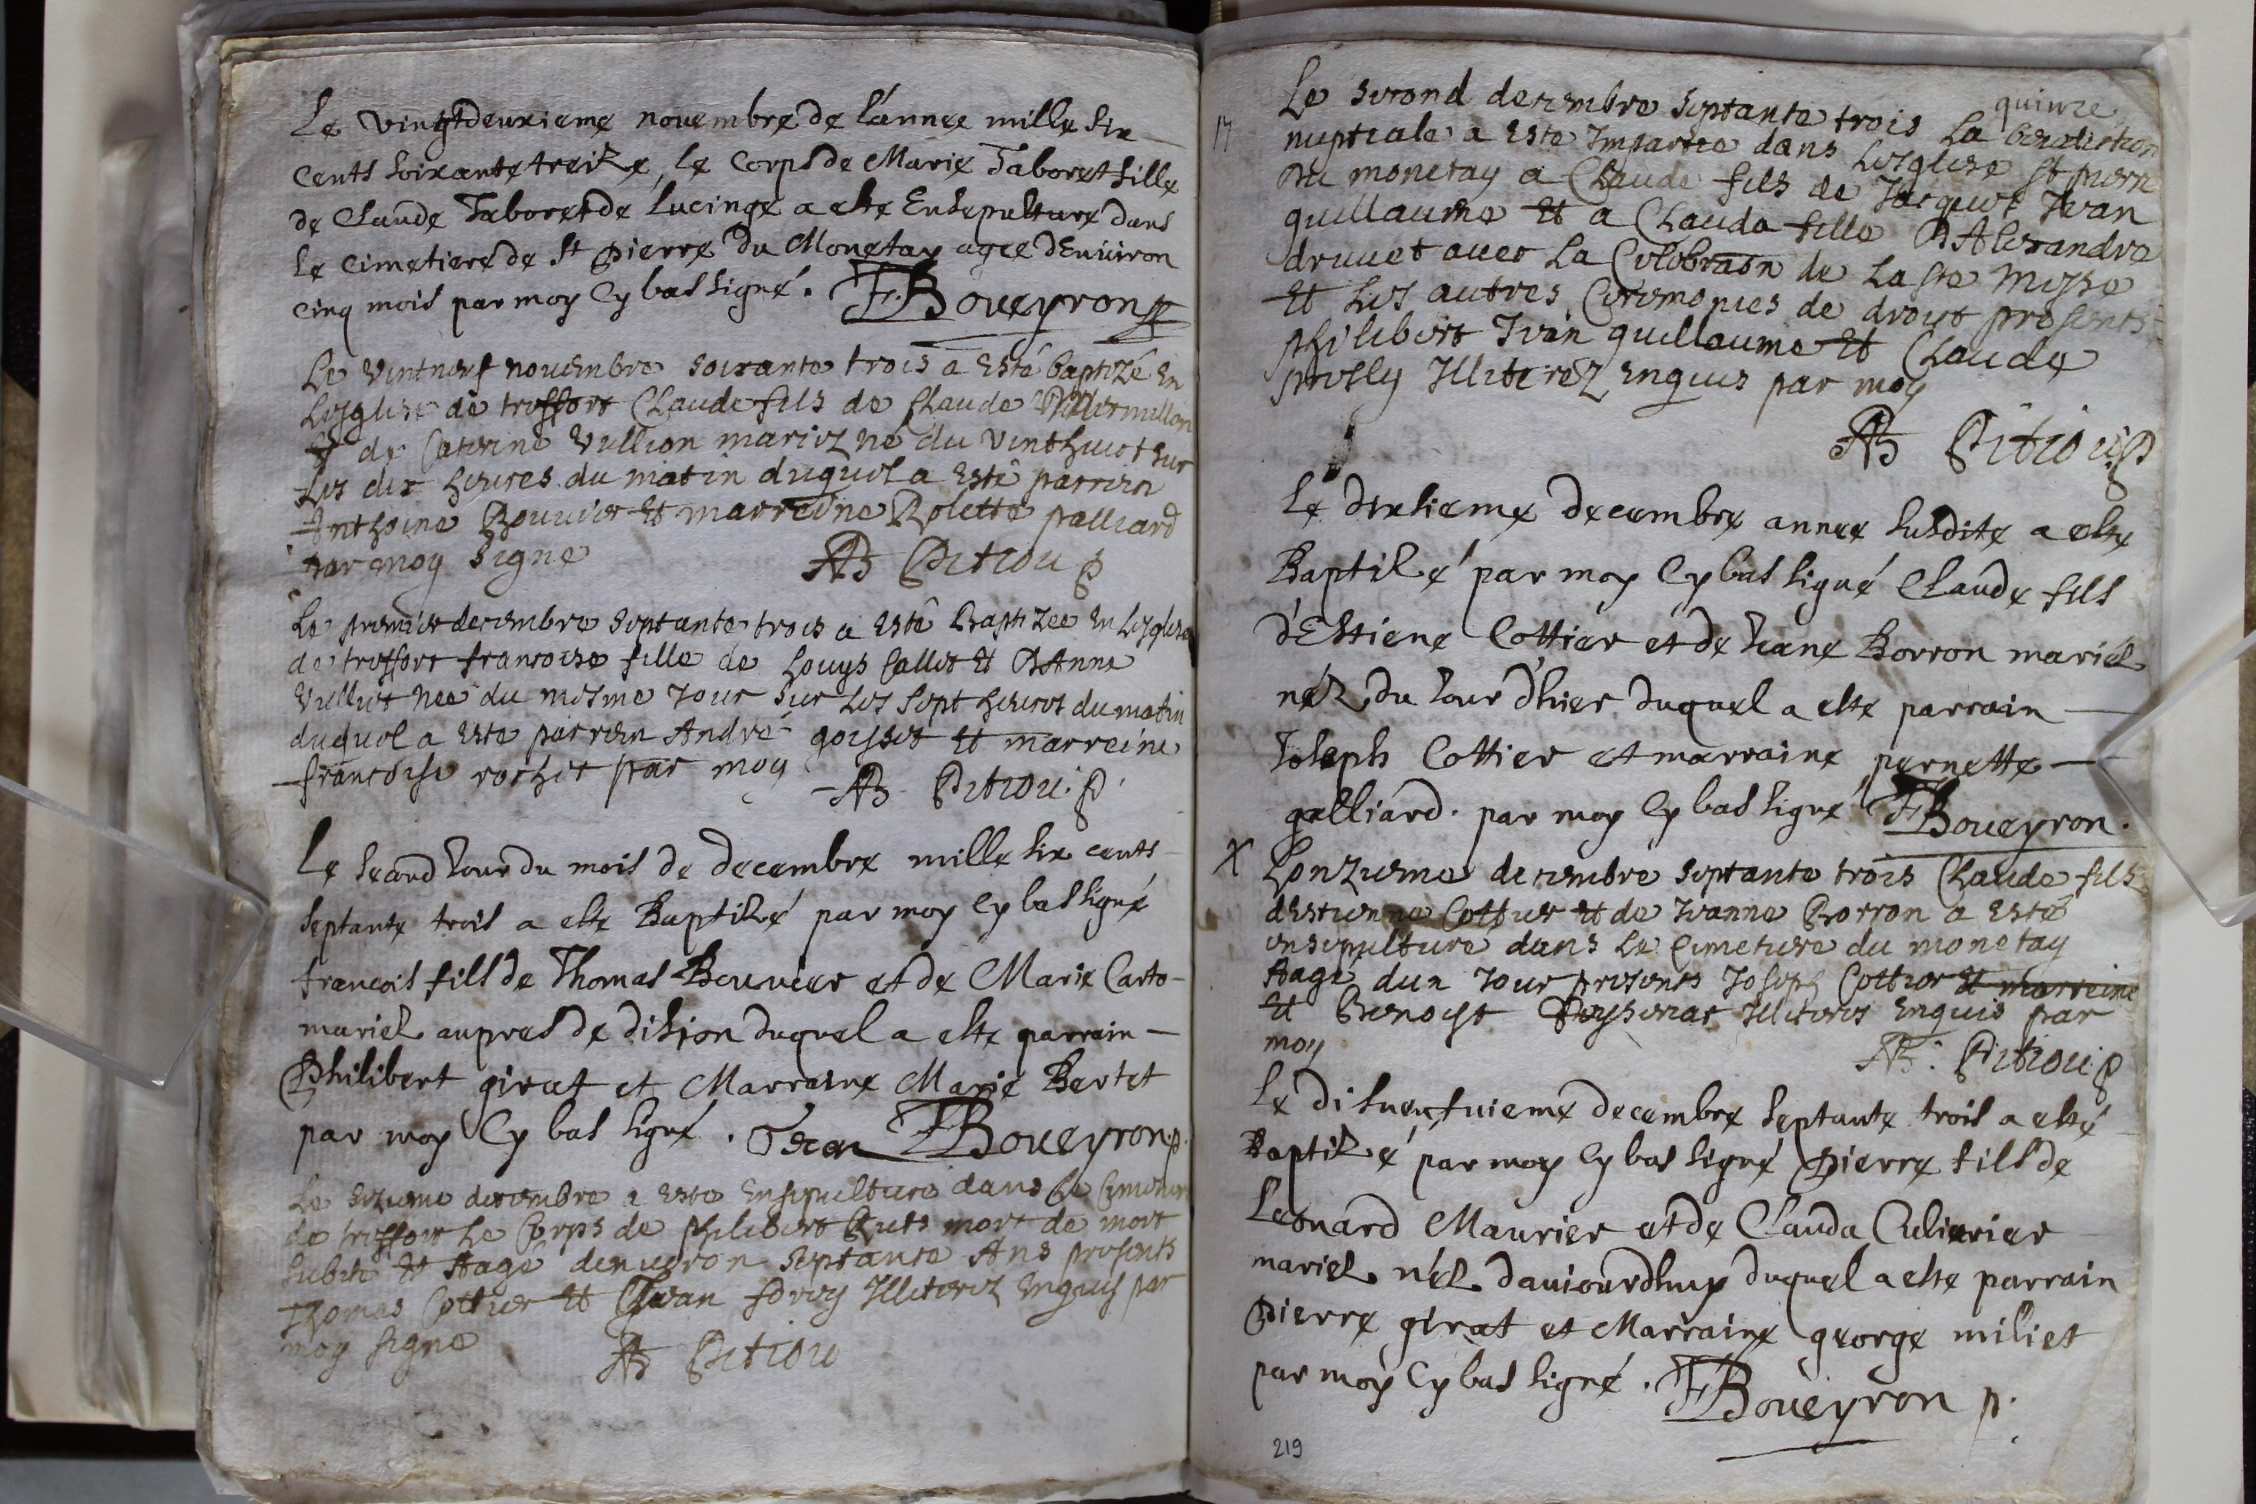 Le vingtdeuxieme novembre de l'annee mille six
cents soixante treize, le corps de Marie Taboret fille
de Claude Taboret de Lucinge a este Ensepulture dans
le cimetiere de St Pierre du Monetay agee d'Enuiron
cinq mois par moy Cy bas signé. F. Boueyron p
Le vintneuf nouembre soixante trois a esté baptizé en
Lesglise de treffort Claude fils de Claude
et de Caterine Vullion mariez né du vinthuict sur
les dix heures du matin duquel a esté parrein
Anthoine Bouuier et marreine Rolette palliard
par moy signe AB Pitiou p
Le premier decembre septante trois a esté Baptizee en Lesglise
de treffort francoise fille de Louys Callet et D'Anne
Vulliet nee du mesme jour sur les sept heures du matin
duquel a este parrein André goysset et marreine
francoise rochet par moy AB Pitiou. p
Le second Jour du mois de decembre mille six cents
septante trois a este Baptizé par moy Cy bas signé
francois fils de Thomas Bouuier et de Marie Carto-
mariez aupres de dision duquel a este parrain
Philibert girat et Marraine Marie Bertet
par moy Cy bas signé. F Boueyron p.
Le sizieme decembre a este ensepulture dans le Cimetiere
de treffort Le Corps de philibert Buts mort de mort
subite et Aagé denuiron septante Ans presents
Thomas Cottier et Jvan fdroy Illiterez enquis par
moy signe AB Pitiou
quinze
17
Le second decembre septante trois La benediction
nuptiale a este Impartie dans Lesglise St pierre
du monetay a Claude fils de Jacques Jvan
guillaume et a Clauda fille D'Alexandre
druuet auec La Celebraon de La ste messe
et les autres Ceremonies de droict presents
philibert Jvan guillaume et Claude
prosly Illiterez enquis par moy
AB Pitiou. p
Le dixsieme decembre annee susdite a este
Baptizé par moy Cy bas signé Claude fils
d'Estiene Cottier et de Jeane Borron mariez
néz du Jour d'hier duquel a este parrain
Joseph Cottier et marraine pernette
galliard. par moy Cy bas signé F Boueyron.
X
Lonzieme decembre septante trois Claude fils
destienne Cottier et de Jvanne Borron a esté
ensepulture dans le Cimetiere du monetay
Aagé dun Jour presents Joseph Cottier et marreine
et Benoist Illiteres enquis par
moy
AB. Pitiou. p
Le disneufuieme decembre septante trois a esté
Baptizé par moy Cy bas signé Pierre fils de
Leonard Maurier et de Clauda Culierier
mariez néz daujourdhuy duquel a este parrain
Pierre girat et Marraine george miliet
par moy Cy bas signé. F Boueyron p.
219